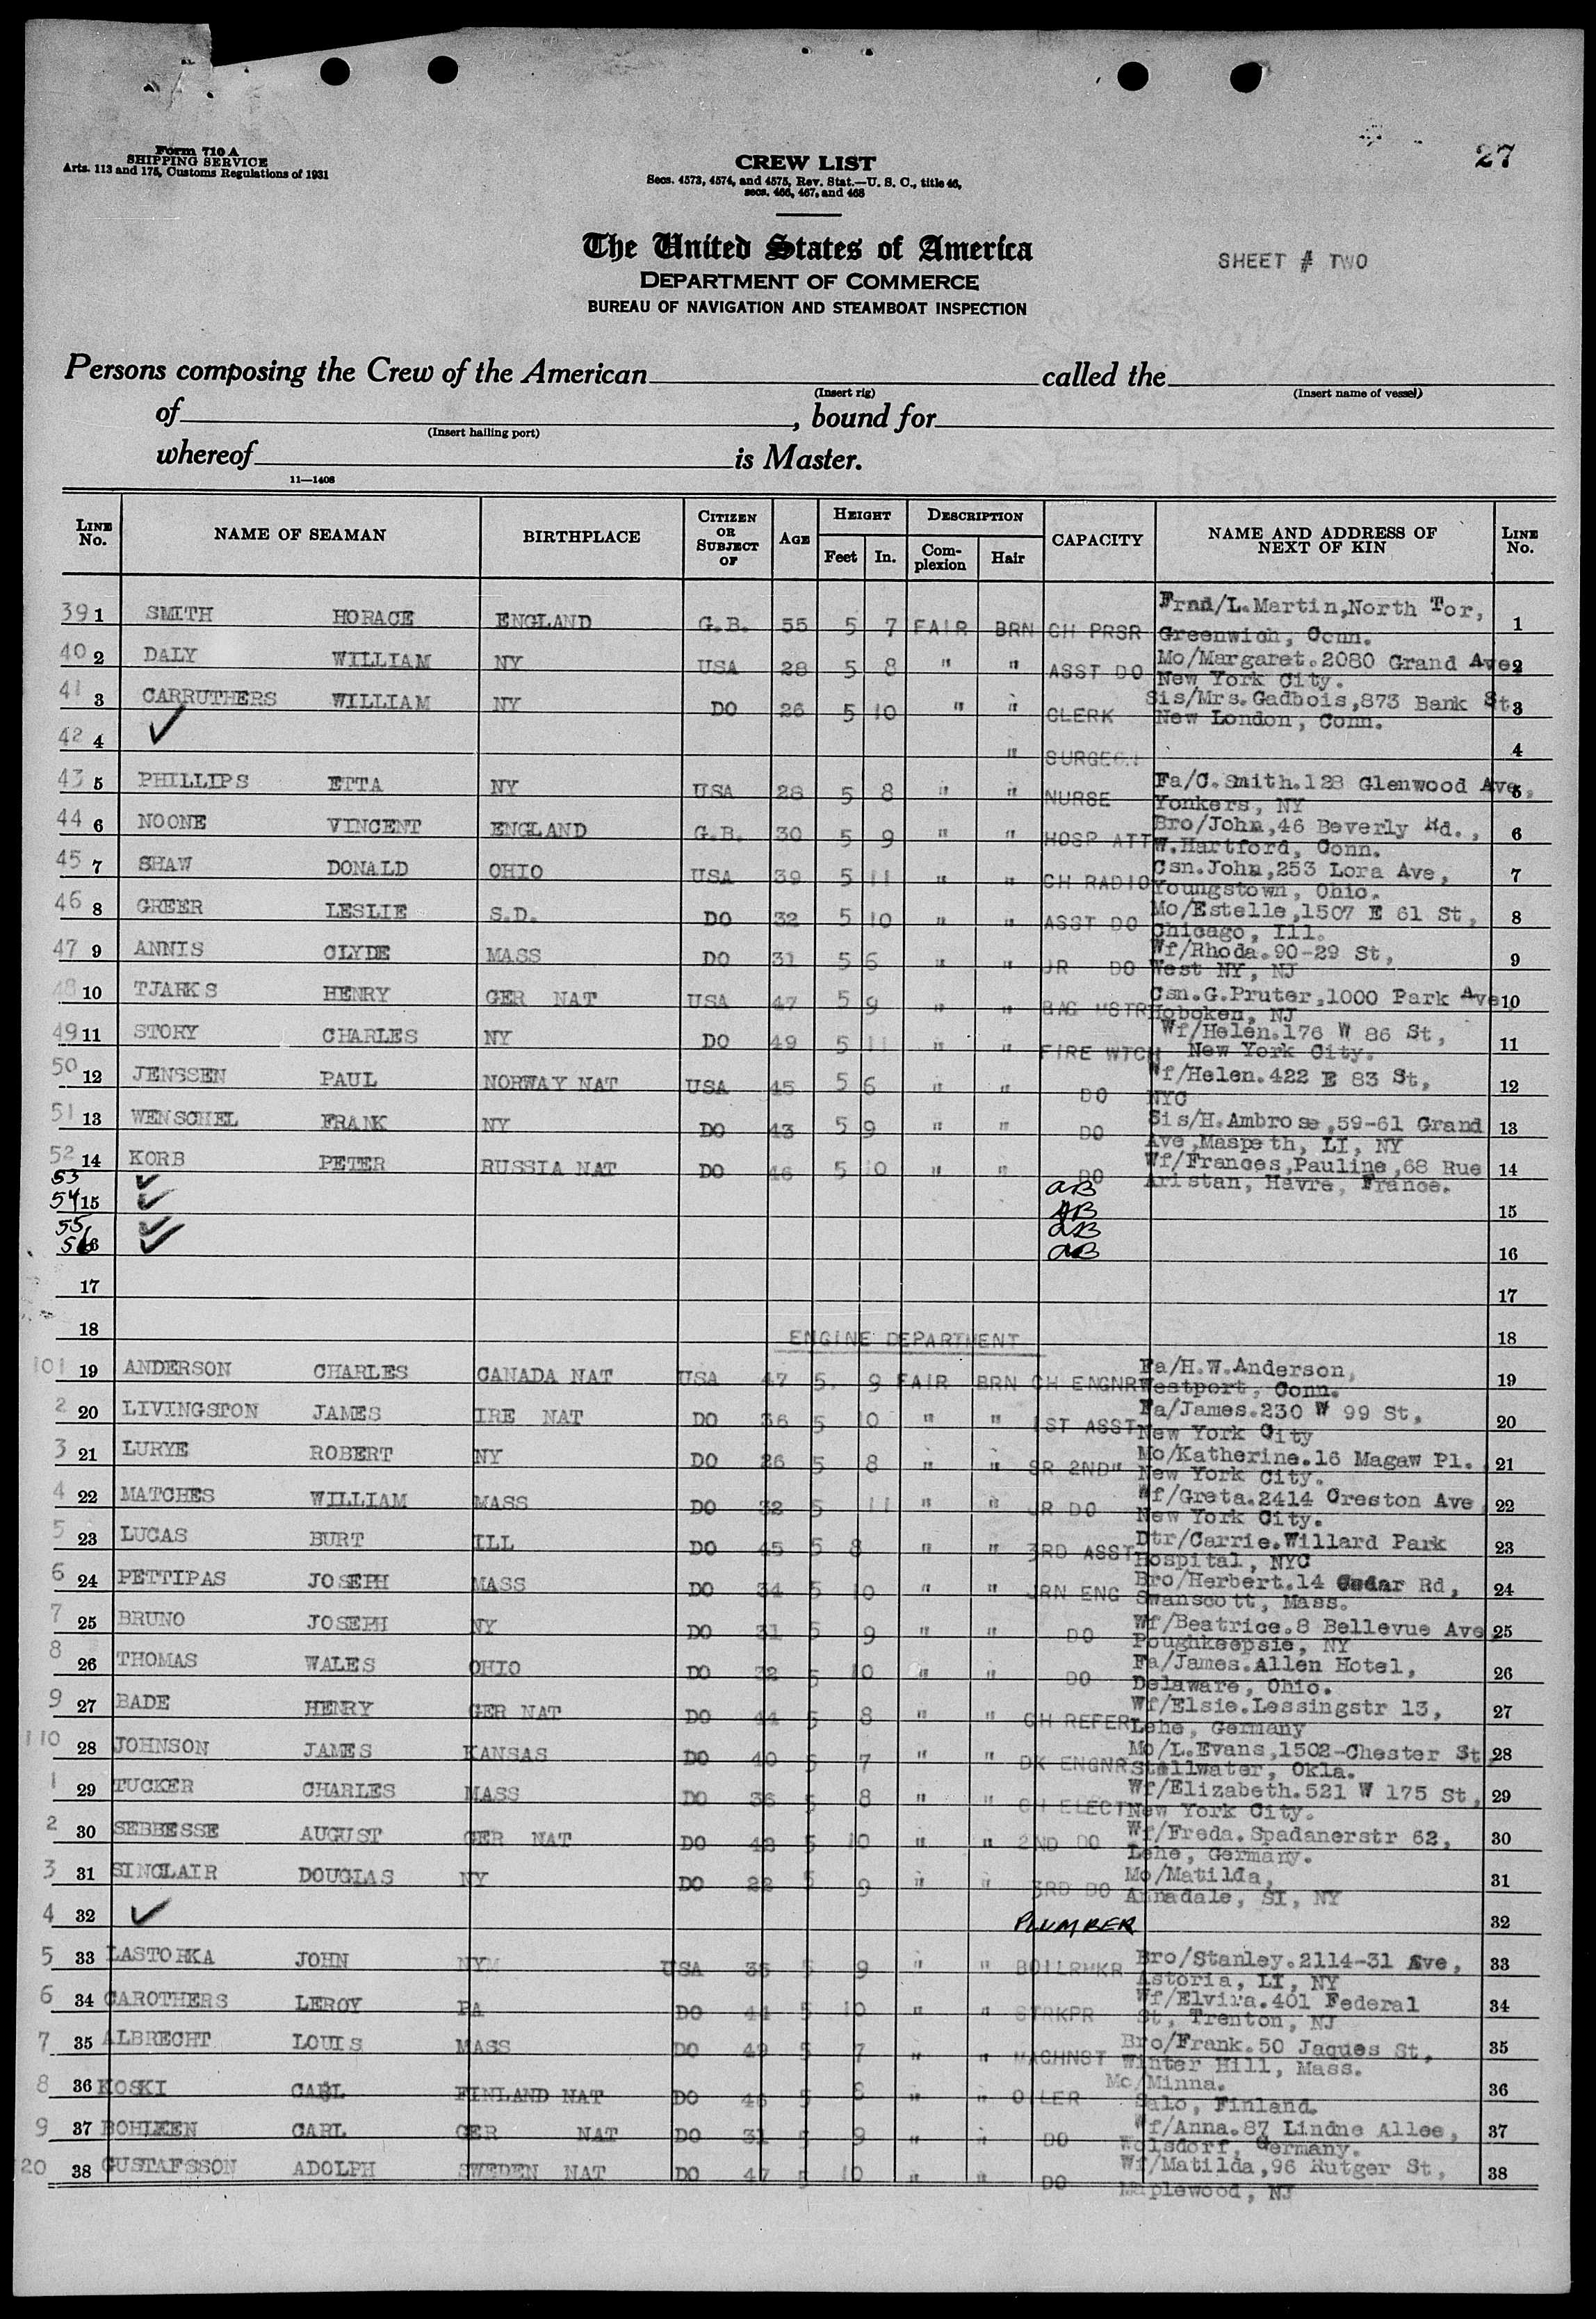 Form 710 A
SHIPPING SERVICE
Arts. 113 and 175, Customs Regulations of 1931
CREW LIST
Secs. 4573, 4574, and 4575, Rev. Stat.—U. S. C., title 46,
secs. 466, 467, and 468
27
The United States of America
DEPARTMENT OF COMMERCE
BUREAU OF NAVIGATION AND STEAMBOAT INSPECTION
SHEET # TWO
Persons composing the Crew of the American called the
(Insert rig) (Insert name of vessel)
of , bound for
(Insert hailing port)
whereof is Master.
11—1408
LINE No. NAME OF SEAMAN BIRTHPLACE CITIZEN OR SUBJECT OF AGE HEIGHT Feet In. DESCRIPTION Complexion Hair CAPACITY NAME AND ADDRESS OF NEXT OF KIN LINE No.
39 1 SMITH HORACE ENGLAND G.B. 55 5 7 FAIR BRN CH PRSR Frnd/L.Martin,North Tor, 1
Greenwich, Conn.
40 2 DALY WILLIAM NY USA 28 5 8 " " ASST DO Mo/Margaret.2080 Grand Ave 2
New York City.
41 3 CARRUTHERS WILLIAM NY DO 26 5 10 " " CLERK Sis/Mrs.Gadbois,873 Bank St 3
New London, Conn.
42 4 ✓ " SURGEON 4
43 5 PHILLIPS ETTA NY USA 28 5 8 " " NURSE Fa/C.Smith.128 Glenwood Ave, 5
Yonkers, NY
44 6 NOONE VINCENT ENGLAND G.B. 30 5 9 " " HOSP ATT Bro/John,46 Beverly Rd., 6
W.Hartford, Conn.
45 7 SHAW DONALD OHIO USA 39 5 11 " " CH RADIO Csn.John,253 Lora Ave, 7
Youngstown, Ohio.
46 8 GREER LESLIE S.D. DO 32 5 10 " " ASST DO Mo/Estelle,1507 E 61 St, 8
Chicago, Ill.
47 9 ANNIS CLYDE MASS DO 31 5 6 " " JR DO Wf/Rhoda.90-29 St, 9
West NY, NJ
48 10 TJARKS HENRY GER NAT USA 47 5 9 " " BAG MSTR Csn.G.Pruter,1000 Park Ave 10
Hoboken, NJ
49 11 STORY CHARLES NY DO 49 5 11 " " FIRE WTCH Wf/Helen.176 W 86 St, 11
New York City.
50 12 JENSSEN PAUL NORWAY NAT USA 45 5 6 " " DO Wf/Helen.422 E 83 St, 12
NYC
51 13 WENSCHEL FRANK NY DO 43 5 9 " " DO Sis/H.Ambrose,59-61 Grand 13
Ave,Maspeth, LI, NY
52 14 KORB PETER RUSSIA NAT DO 46 5 10 " " DO Wf/Frances,Pauline,68 Rue 14
Aristan, Havre, France.
53 ✓ AB
54 15 ✓ AB 15
55 ✓ AB
56 ✓ AB 16
17 17
18 ENGINE DEPARTMENT 18
101 19 ANDERSON CHARLES CANADA NAT USA 47 5. 9 FAIR BRN CH ENGNR Fa/H.W.Anderson, 19
Westport, Conn.
2 20 LIVINGSTON JAMES IRE NAT DO 36 5 10 " " 1ST ASST Fa/James.230 W 99 St, 20
New York City
3 21 LURYE ROBERT NY DO 26 5 8 " " SR 2ND" Mo/Katherine.16 Magaw Pl. 21
New York City.
4 22 MATCHES WILLIAM MASS DO 32 5 11 " " JR DO Wf/Greta.2414 Creston Ave 22
New York City.
5 23 LUCAS BURT ILL DO 45 5 8 " " 3RD ASST Dtr/Carrie.Willard Park 23
Hospital, NYC
6 24 PETTIPAS JOSEPH MASS DO 34 5 10 " " JRN ENG Bro/Herbert.14 Cedar Rd, 24
Swanscott, Mass.
7 25 BRUNO JOSEPH NY DO 31 5 9 " " DO Wf/Beatrice.8 Bellevue Ave 25
Poughkeepsie, NY
8 26 THOMAS WALES OHIO DO 32 5 10 " " DO Fa/James.Allen Hotel, 26
Delaware, Ohio.
9 27 BADE HENRY GER NAT DO 44 5 8 " " CH REFER Wf/Elsie.Lessingstr 13, 27
Lehe, Germany
110 28 JOHNSON JAMES KANSAS DO 40 5 7 " " DK ENGNR Mo/L.Evans,1502-Chester St 28
Stellwater, Okla.
1 29 TUCKER CHARLES MASS DO 36 5 8 " " CH ELECT Wf/Elizabeth.521 W 175 St, 29
New York City.
2 30 SEBBESSE AUGUST GER NAT DO 43 5 10 " " 2ND DO Wf/Freda.Spadanerstr 62, 30
Lehe, Germany.
3 31 SINCLAIR DOUGLAS NY DO 22 5 9 " " 3RD DO Mo/Matilda, 31
Annadale, SI, NY
4 32 ✓ PLUMBER 32
5 33 LASTOHKA JOHN NYM USA 35 5 9 " " BOILRMKR Bro/Stanley.2114-31 Ave, 33
Astoria, LI, NY
6 34 CAROTHERS LEROY PA DO 44 5 10 " " STRKPR Wf/Elvira.401 Federal 34
St, Trenton, NJ
7 35 ALBRECHT LOUIS MASS DO 49 5 7 " " MACHNST Bro/Frank.50 Jaques St, 35
Winter Hill, Mass.
8 36 KOSKI CARL FINLAND NAT DO 46 5 8 " " OILER Mo/Minna. 36
Salo, Finland.
9 37 BOHLEEN CARL GER NAT DO 31 5 9 " " DO Wf/Anna.87 Lindne Allee, 37
Wolsdorf, Germany.
20 38 GUSTAFSSON ADOLPH SWEDEN NAT DO 47 5 10 " " DO Wf/Matilda,96 Rutger St, 38
Maplewood, NJ